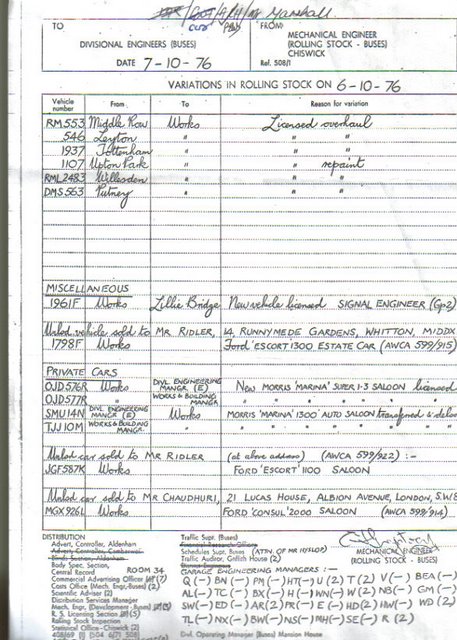 Marshall
TO FROM
DIVISIONAL ENGINEERS (BUSES)
MECHANICAL ENGINEER
(ROLLING STOCK - BUSES)
CHISWICK
DATE 7-10-76
Ref. 508/1
VARIATIONS IN ROLLING STOCK ON 6-10-76
Vehicle number From To Reason for variation
RM.553 Middle Row Works Licensed overhaul
546 Leyton " " "
1937 Tottenham " " "
1107 Upton Park " " repaint
RML2483 Willesden " " "
DMS563 Putney " " "
MISCELLANEOUS
1961F Works Lillie Bridge New vehicle licensed SIGNAL ENGINEER (Gp2)
vehicle sold to MR RIDLER, 14 RUNNYMEDE GARDENS, WHITTON, MIDDX
1798F Works Ford 'ESCORT 1300 ESTATE CAR (AWCA 599/915)
PRIVATE CARS
OJD576R Works DIVL ENGINEERING MANGR. (E) New MORRIS 'MARINA' SUPER 1·3 SALOON licensed
OJD577R " WORKS & BUILDING MANGR " " " " " "
SMU14N DIVL ENGINEERING MANGR (E) Works MORRIS 'MARINA 1300' AUTO SALOON transferred &
TJJ10M WORKS & BUILDING MANGR. " " " " " "
car sold to MR RIDLER (at above address) (AWCA 599/922) :-
JGF587K Works FORD 'ESCORT' 1100 SALOON
car sold to MR CHAUDHURI, 21 LUCAS HOUSE, ALBION AVENUE, LONDON, S.W.8
MGX926L Works FORD 'CONSUL' 2000 SALOON (AWCA 599/914)
DISTRIBUTION
Advert. Controller, Aldenham
Advert. Controller, Camberwell
Body Spec. Section,
Central Record ROOM 34
Commercial Advertising Officer (7)
Costs Office (Mech. Engr. Buses) (2)
Scientific Adviser (2)
Distribution Services Manager
Mech. Engr. (Development - Buses)
R.S. Licensing Section
Rolling Stock Inspection
Statistical Office - Chiswick
Traffic Supt. (Buses)
Financial Research Officer
Schedules Supt. (Buses)
Traffic Auditor, Griffith House (2)
GARAGE ENGINEERING MANAGERS :-
MECHANICAL ENGINEER
(ROLLING STOCK - BUSES)
Divl. Operating Manager (Buses) Mansion House